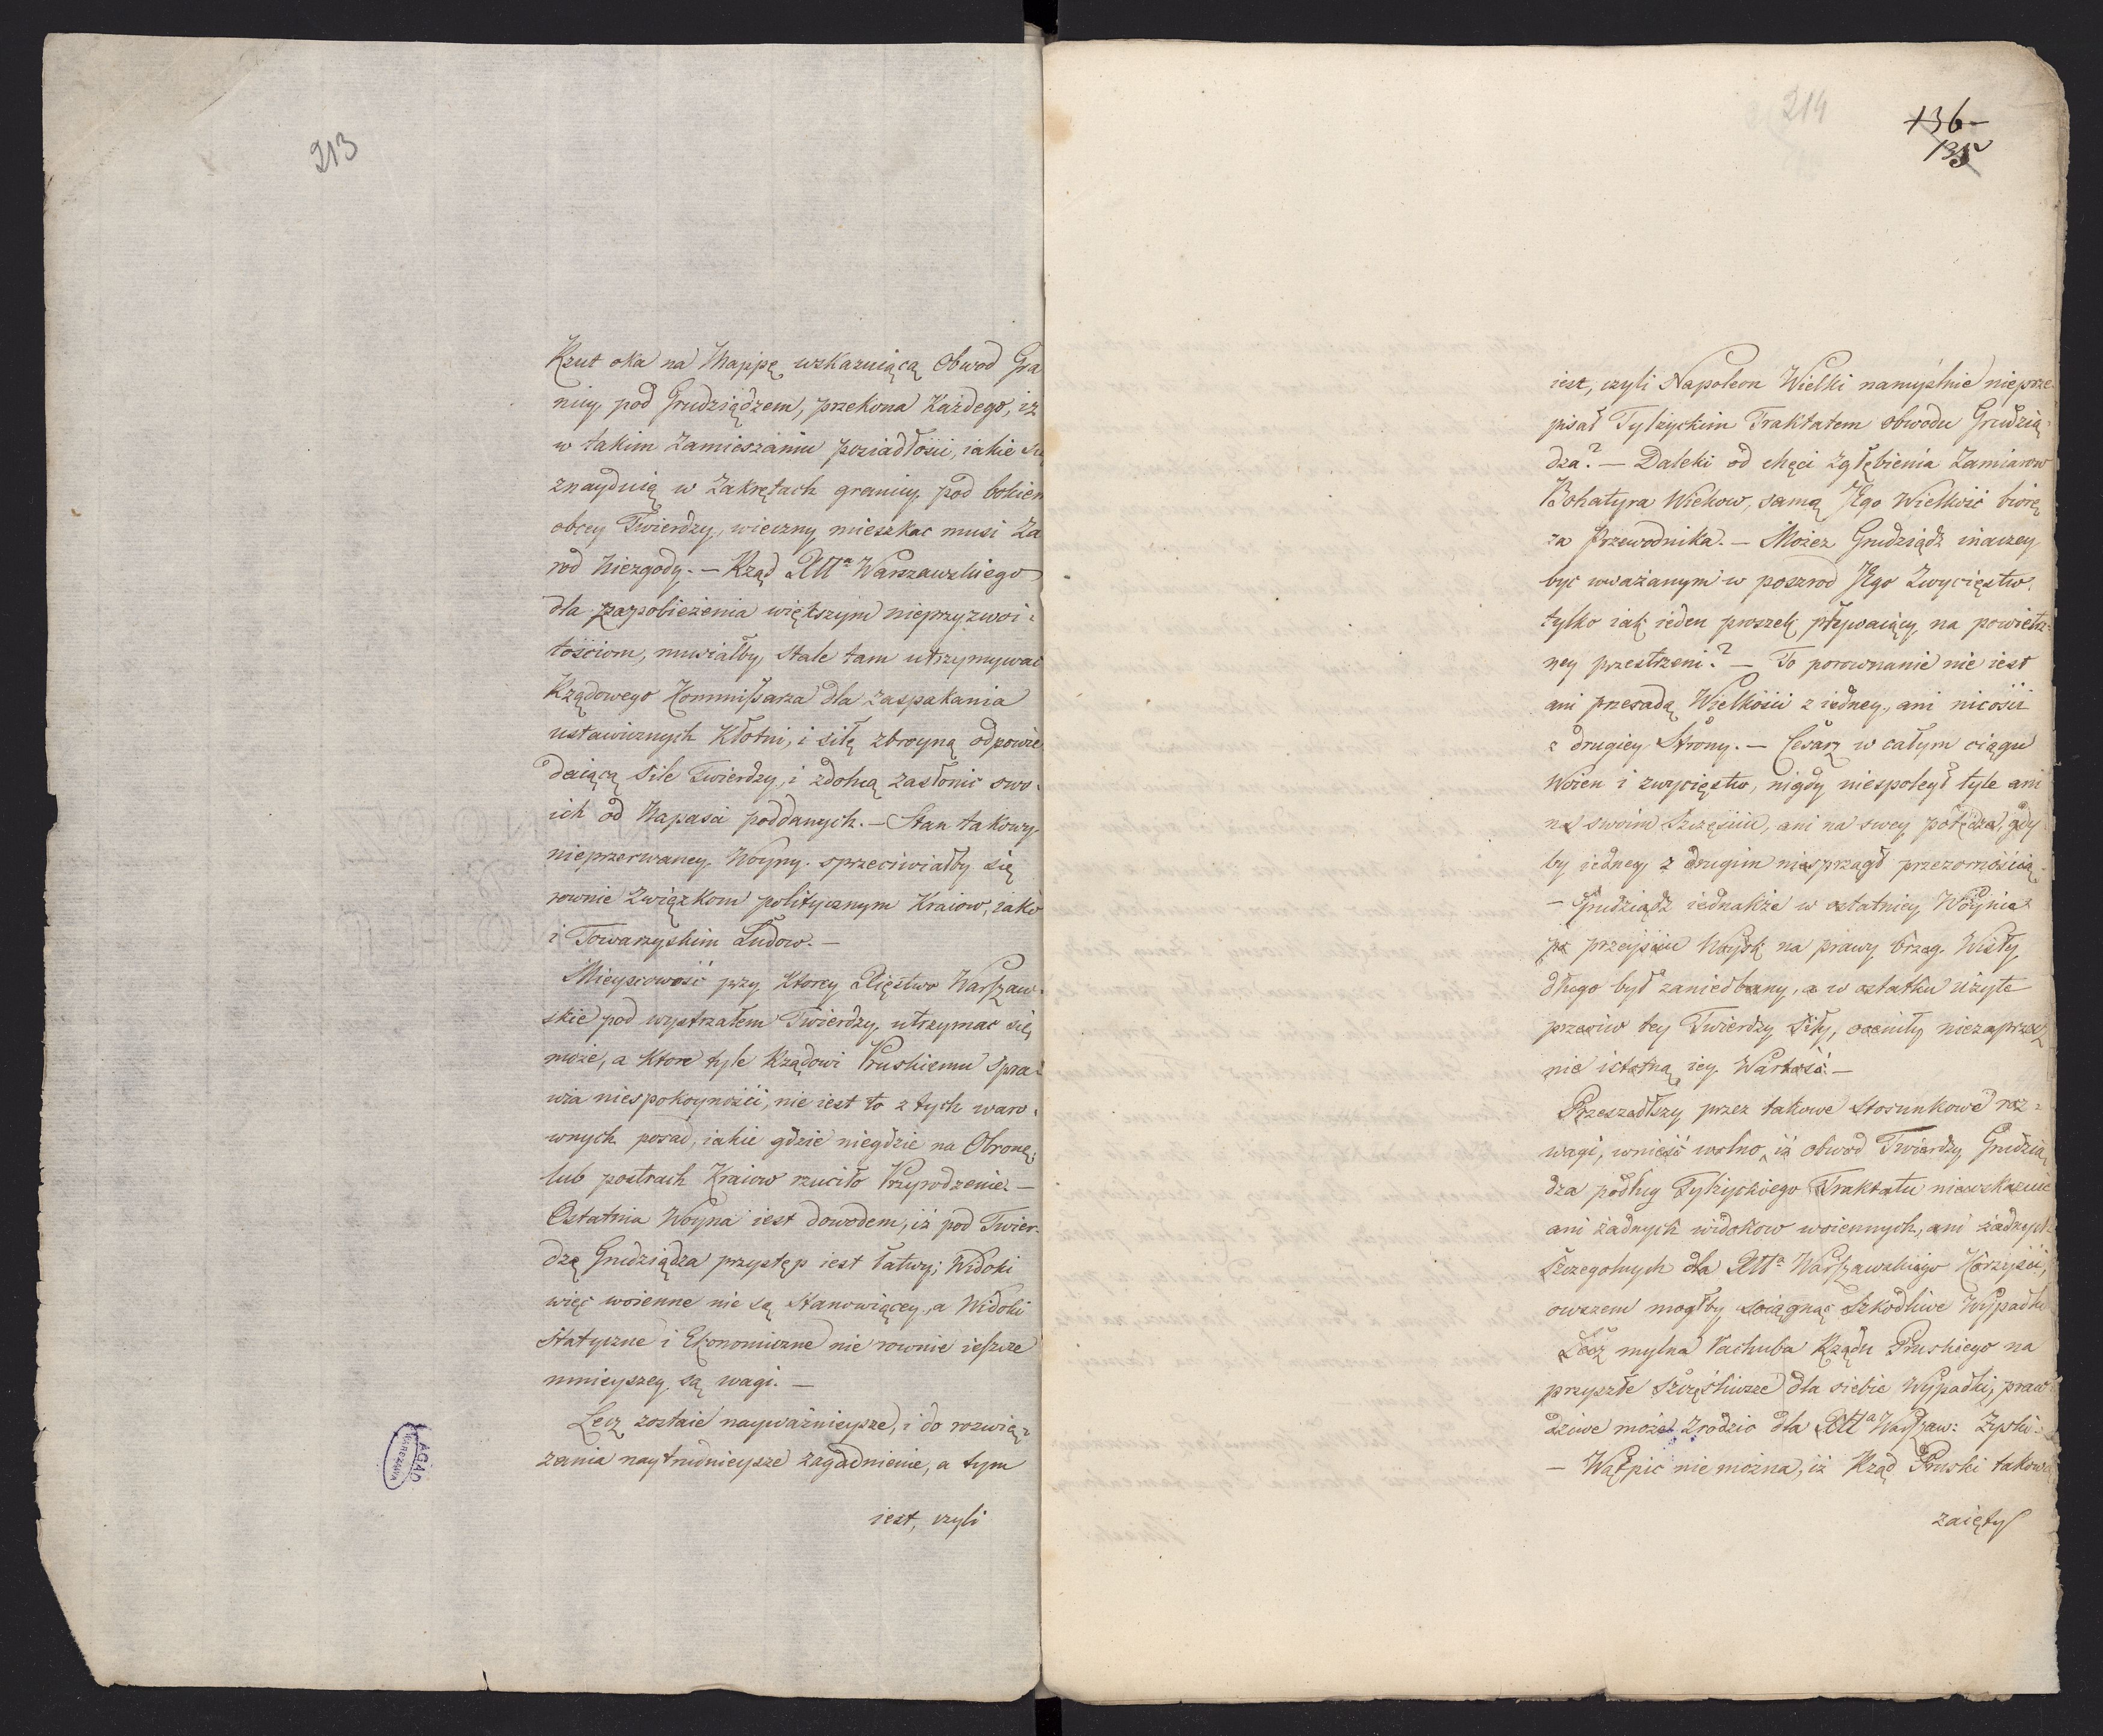 213
Rzut oka na Mappę wskazuiącą Obwod Gra
nicy pod Grudziądzem, przekona Każdego, iż
w takim zamieszaniu posiadłości, iakie się
znayduią w zakrętach granicy pod bokiem
obcey Twierdzy, wieczny mieszkac musi Za
rod Niezgody. — Rząd Xtta Warszawskiego
dla zapobieżenia większym nieprzyzwoi-
tościom, musiałby stale tam utrzymywac
Rządowego Kommissarza dla zaspakania
ustawicznych Kłotni, i siłę zbroyną odpowie
daiącą sile Twierdzy, i zdolną zasłonic swo-
ich od Napaści poddanych. — Stan takowy
nieprzerwaney Woyny sprzeciwiałby się
rownie związkom politycznym Kraiow, iako
i Towarzyskim Ludow. —
Mieyscowość przy Ktorey Xięstwo Warszaw-
skie pod wystrzałem Twierdzy utrzymac się
może, a Ktore tyle Rządowi Pruskiemu spra-
wia niespokoyności, nie iest to z tych waro-
wnych posad, iakie gdzie niegdzie na Obronę
lub postrach Kraiow rzuciło Przyrodzenie. —
Ostatnia Woyna iest dowodem, iż pod Twier-
dzę Grudziądza przystęp iest łatwy; Widoki
więc woienne nie są stanowiącey, a Widoki
Statyczne i Ekonomiczne nie rownie ieszcze
mnieyszey są wagi. —
Lecz zostaie nayważnieysze, i do rozwią-
zania naytrudnieysze zagadnienie, a tym
iest, czyli
AGAD
WARSZAWA
214
136 —
135
iest, czyli Napoleon Wielki namyślnie nieprze
pisał Tylżyckim Traktatem obwodu Grudzią-
dza? — Daleki od chęci zgłębienia Zamiarow
Bohatyra Wiekow, samą Jego Wielkość biorę
za Przewodnika. — Możeż Grudziądz inaczey
byc uważanym w poszrod Jego Zwycięstw,
tylko iak ieden proszek pływaiący na powietrz-
ney przestrzeni? — To porownanie nie iest
ani przesadą Wielkości z iedney, ani nicości
z drugiey Strony. — Cesarz w całym ciągu
Woien i zwycięstw, nigdy niepolegał tyle ani
na swoim Szczęściu, ani na swey potędze, gdy
by iedney z drugim niesprzągł przezornością.
— Grudziądz iednakże w ostatniey Woynie
po przeyściu Woysk na prawy brzeg Wisły
długo był zaniedbany, a w ostatku użyte
przeciw tey Twierdzy Siły, oceniły niezaprzecz
nie istotną iey Wartość. —
Przeszedłszy przez takowe stosunkowe roz-
wagi, wnieść wolno, iż obwod Twierdzy Grudzią
dza podług Tylżyckiego Traktatu niewskazuie
ani żadnych widokow woiennych, ani żadnych
szczegolnych dla Xtta Warszawskiego Korzyści,
owszem mogłby sciągnąc szkodliwe Wypadki
Lecz mylna rachuba Rządu Pruskiego na
przyszłe szczęśliwsze dla siebie Wypadki, praw
dziwe może zrodzic dla Xtta Warszaw: Zyski.
— Wątpic nie można, iż Rząd Pruski takową
zaięty